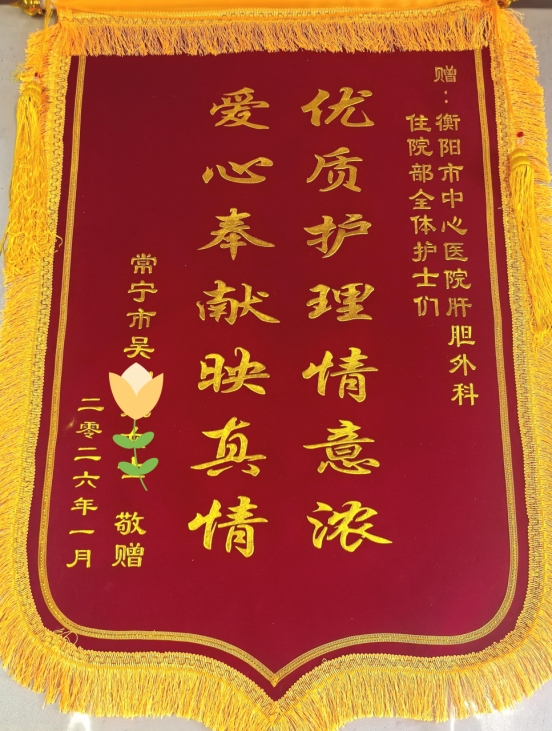 赠：衡阳市中心医院肝胆外科
住院部全体护士们
优质护理情意浓
爱心奉献映真情
常宁市吴 敬赠
二零二六年一月